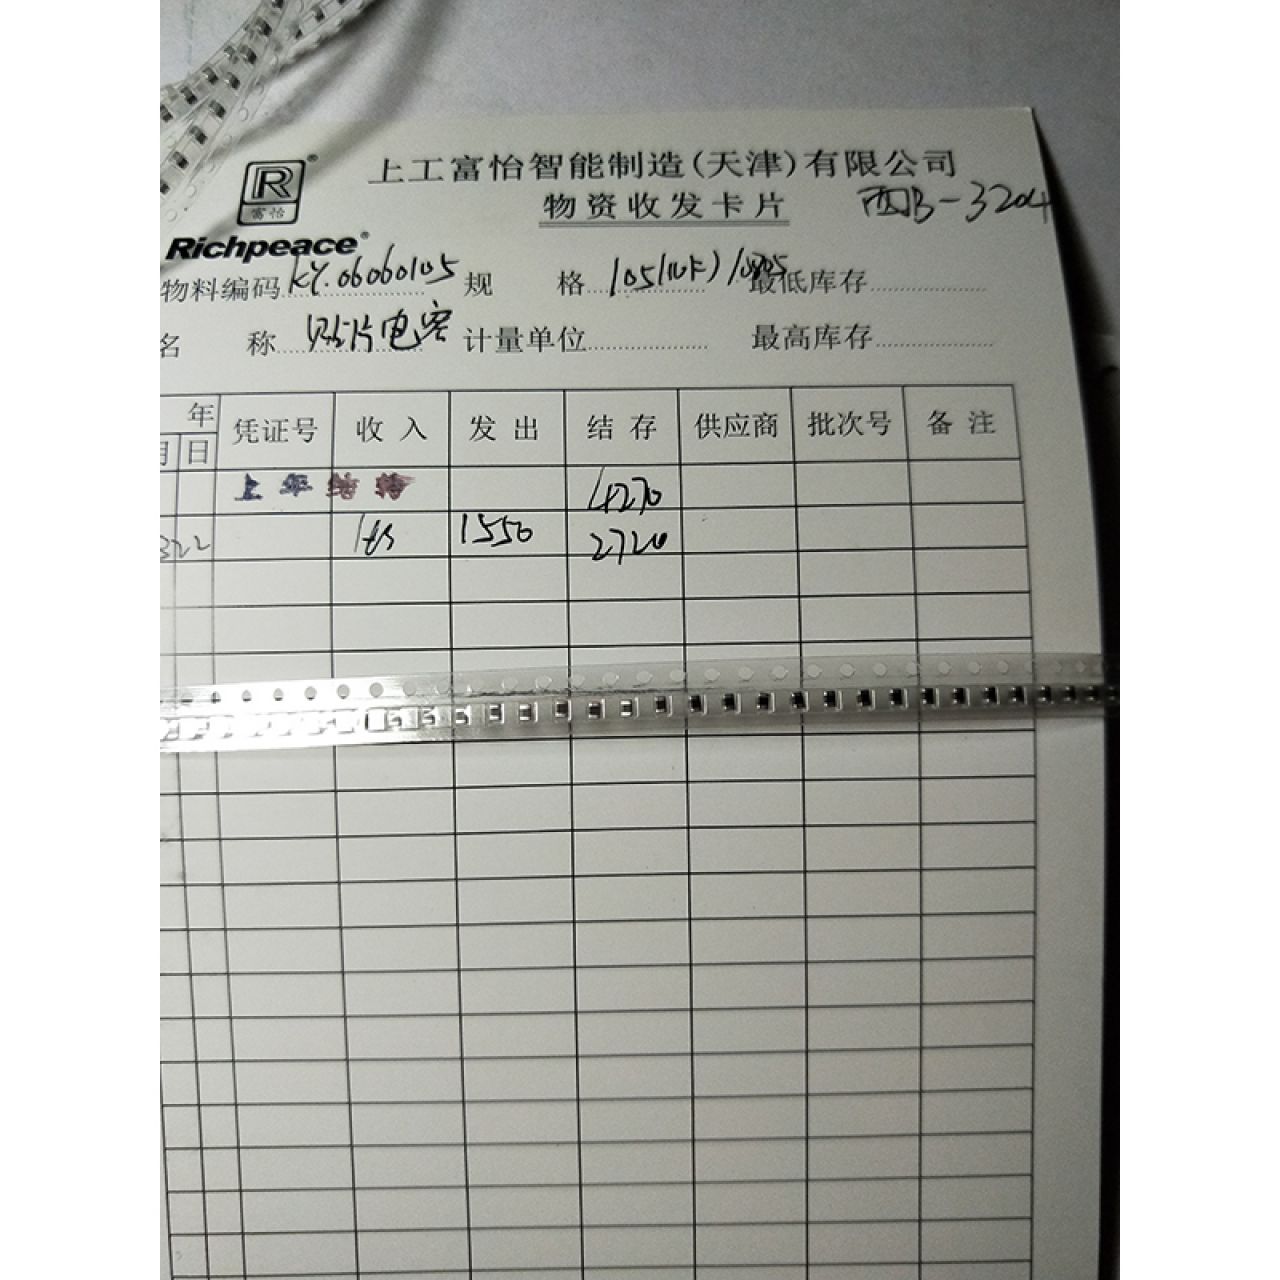 上工富怡智能制造(天津)有限公司
R
富怡
物资收发卡片 西B-3204
Richpeace
物料编码 KY.06060105 规格 105(1uF)/0805 最低库存
名称 贴片电容 计量单位 最高库存
年 凭证号 收入 发出 结存 供应商 批次号 备注
月 日
上年结转 4270
322 1550 2720